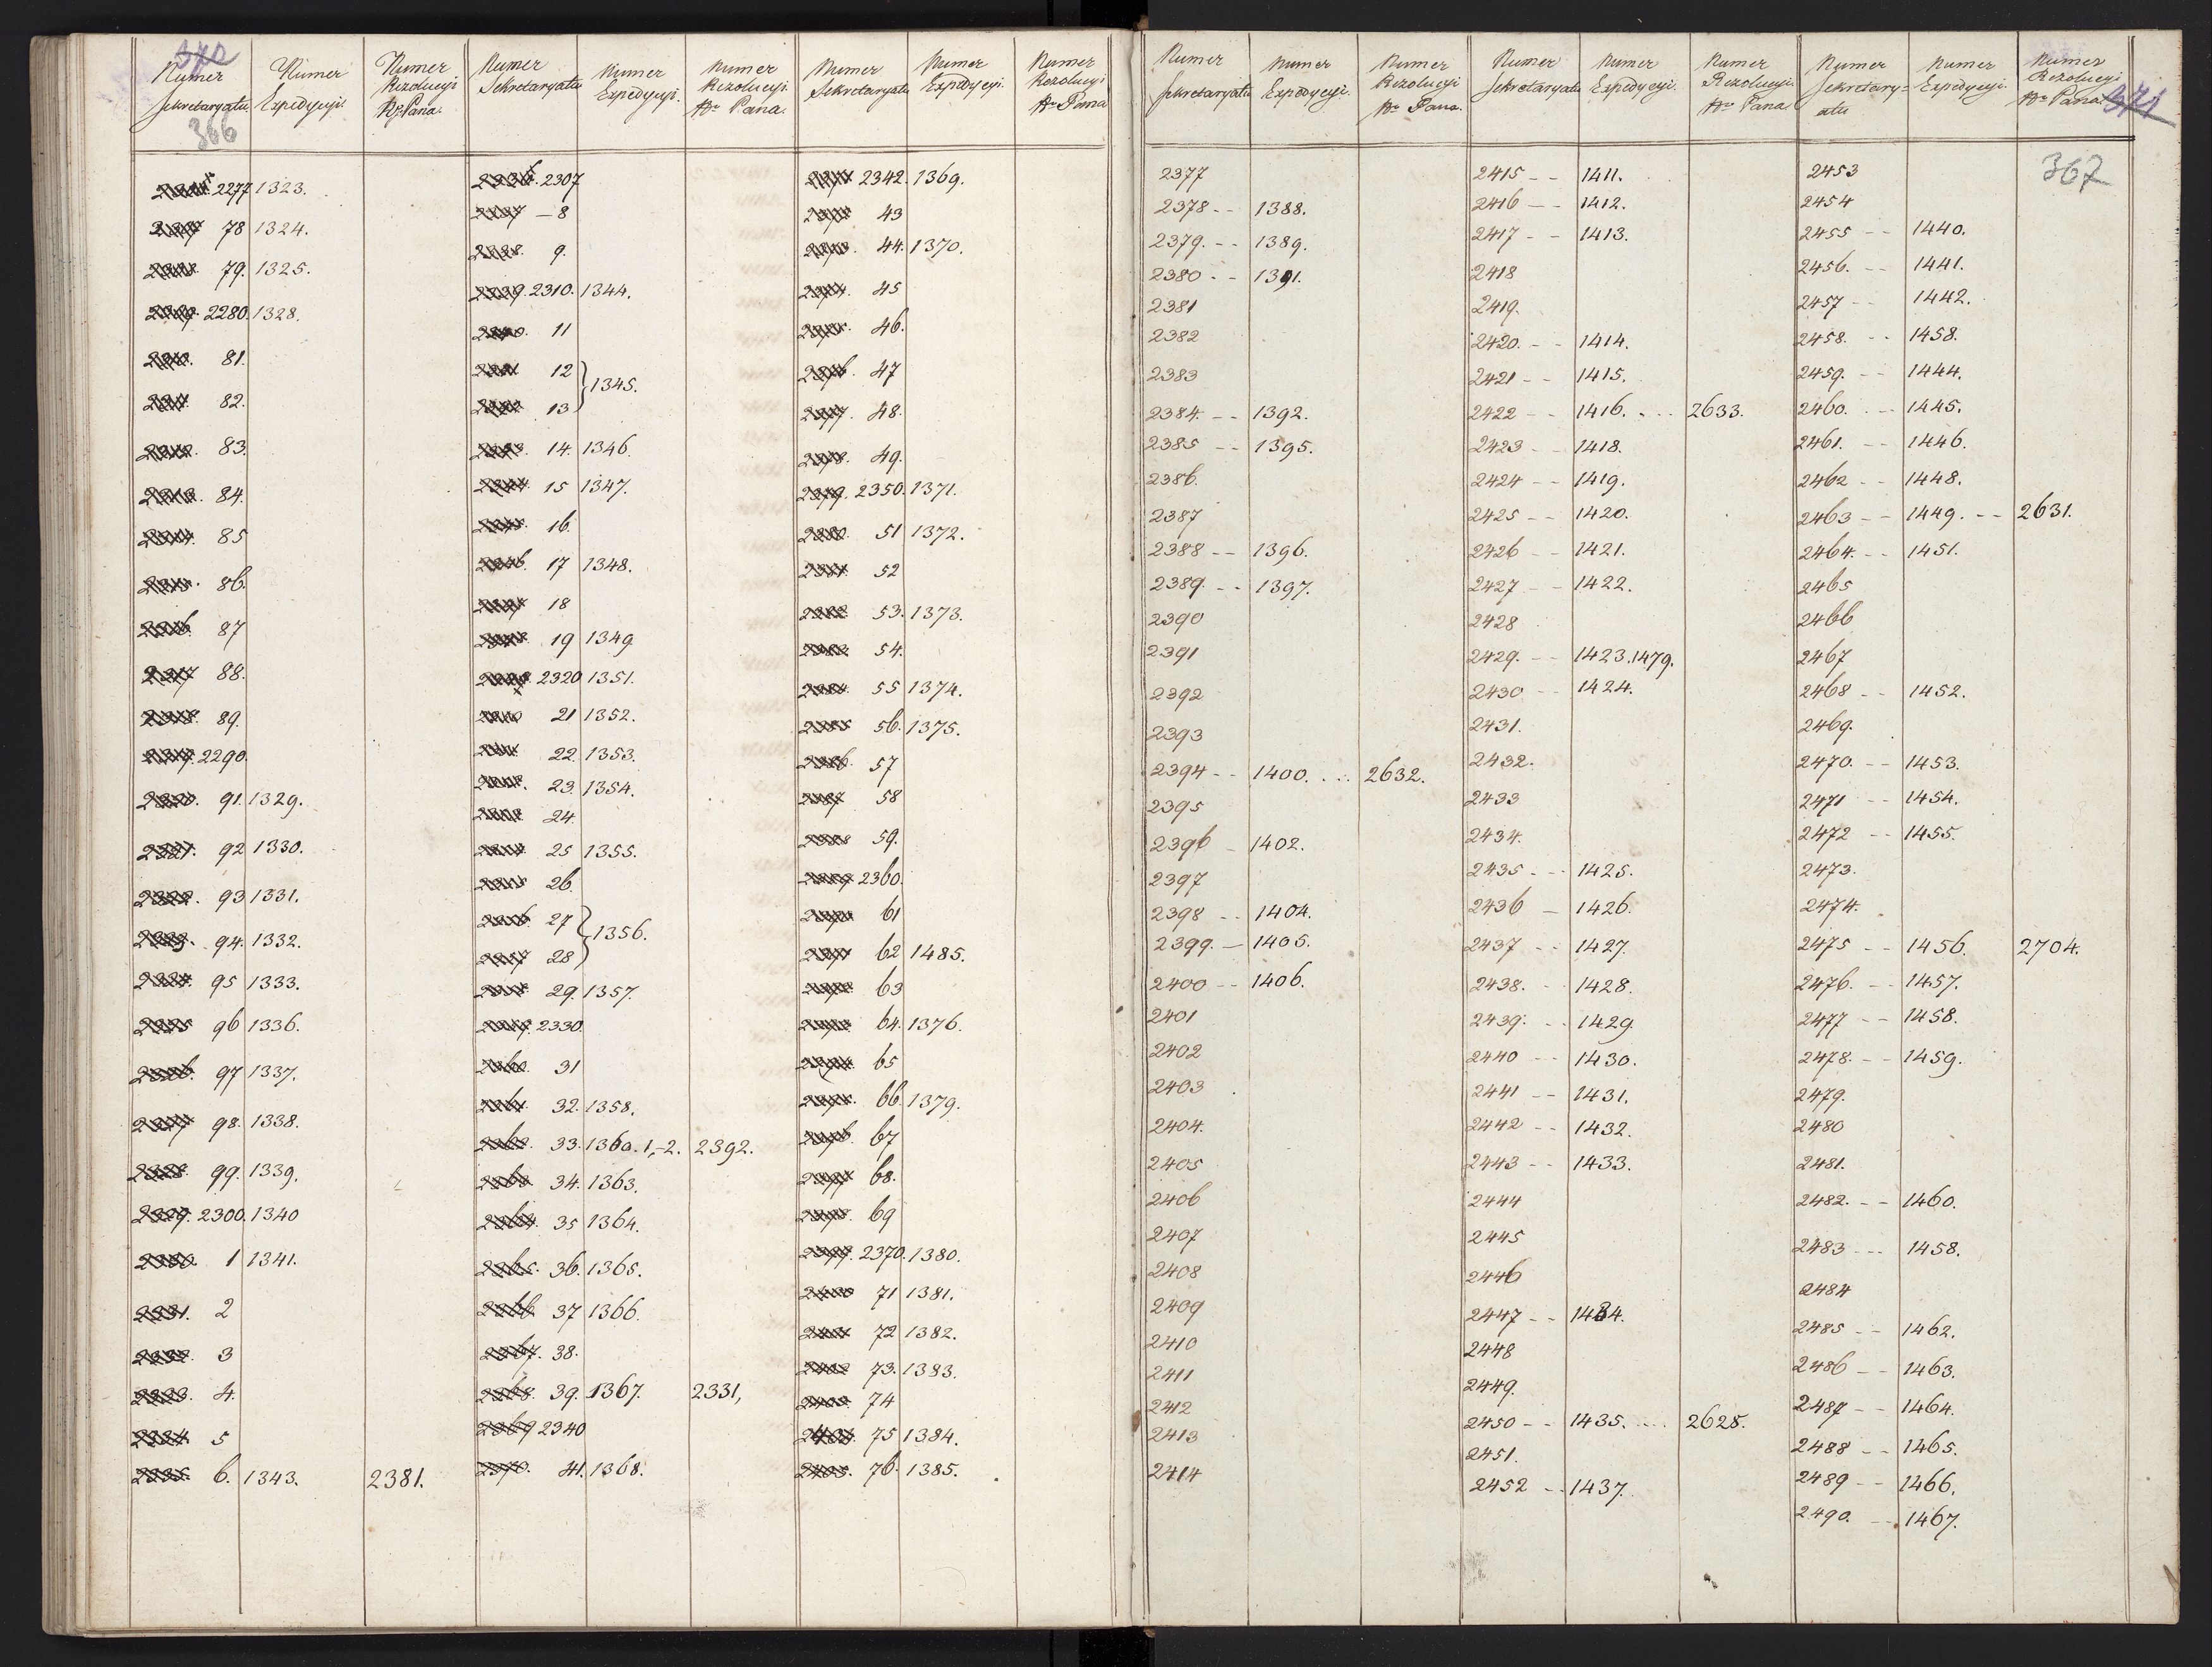 370
Numer Sekretaryatu Numer Expedycyi. Numer Rezolucyi Kr Pana.
366
2277 1323.
78 1324.
79. 1325.
2280. 1328.
81.
82.
83.
84.
85
86.
87
88.
89.
2290.
91. 1329.
92 1330.
93 1331.
94. 1332.
95 1333.
96 1336.
97 1337.
98. 1338.
99. 1339.
2300. 1340
1 1341.
2
3
4.
5
6. 1343. 2381.
Numer Sekretaryatu Numer Expedycyi. Numer Rezolucyi Kr Pana.
2307
– 8
9.
2310. 1344.
11
12
13 } 1345.
14. 1346.
15 1347.
16.
17 1348.
18
19 1349
2320 1351.
21 1352.
22. 1353.
23. 1354.
24.
25 1355.
26.
27
28 } 1356.
29. 1357.
2330.
31
32. 1358.
33. 1360. 1,-2. 2392.
34. 1363.
35 1364.
36. 1365.
37 1366.
38.
39. 1367. 2331,
2340
41. 1368.
Numer Sekretaryatu Numer Expedycyi. Numer Rezolucyi Kr Pana
2342. 1369.
43
44. 1370.
45
46.
47
48.
49.
2350. 1371.
51 1372.
52
53. 1373.
54.
55 1374.
56. 1375.
57
58
59.
2360.
61
62 1485.
63
64. 1376.
65
66. 1379.
67
68.
69
2370. 1380.
71 1381.
72 1382.
73. 1383.
74
75 1384.
76. 1385.
Numer Sekretaryatu Numer Expedycyi. Numer Rezolucyi Kr Pana.
2377
2378 -- 1388.
2379. -- 1389.
2380 -- 1391.
2381
2382
2383
2384. -- 1392.
2385 -- 1395.
2386.
2387
2388 -- 1396.
2389. -- 1397.
2390
2391
2392
2393
2394 -- 1400. ... 2632.
2395
2396 - 1402.
2397
2398 -- 1404.
2399. – 1405.
2400 -- 1406.
2401
2402
2403
2404.
2405
2406
2407
2408
2409
2410
2411
2412
2413
2414
Numer Sekretaryatu Numer Expedycyi. Numer Rezolucyi Kr Pana.
2415 -- 1411.
2416 -- 1412.
2417 -- 1413.
2418
2419.
2420. -- 1414.
2421 -- 1415.
2422 -- 1416. ... 2633.
2423 -- 1418.
2424 -- 1419.
2425 -- 1420.
2426 -- 1421.
2427 -- 1422.
2428
2429. -- 1423.1479.
2430 -- 1424.
2431.
2432.
2433
2434.
2435 -- 1425.
2436 – 1426.
2437 -- 1427.
2438. -- 1428.
2439. -- 1429.
2440 -- 1430.
2441 -- 1431.
2442 -- 1432.
2443 -- 1433.
2444
2445
2446
2447 -- 1434.
2448
2449.
2450 -- 1435. ... 2628.
2451.
2452 -- 1437.
Numer Sekretary=atu Numer Expedycyi. Numer Rezolucyi Kr Pana.
371
367
2453
2454
2455 -- 1440.
2456. -- 1441.
2457 -- 1442.
2458. -- 1458.
2459. -- 1444.
2460. -- 1445.
2461. -- 1446.
2462 -- 1448.
2463 -- 1449. -- 2631.
2464. -- 1451.
2465
2466
2467
2468 -- 1452.
2469.
2470. -- 1453.
2471 -- 1454.
2472 -- 1455.
2473.
2474.
2475 -- 1456. 2704.
2476. -- 1457.
2477 -- 1458.
2478. -- 1459.
2479.
2480
2481.
2482. -- 1460.
2483 -- 1458.
2484
2485 -- 1462.
2486 -- 1463.
2487 -- 1464.
2488 -- 1465.
2489 -- 1466.
2490. -- 1467.